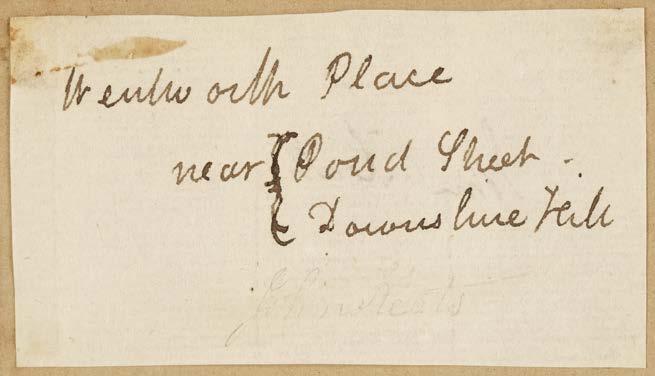 Wentworth Place
near { Pond Street -
{ Downshire Hill
John Keats